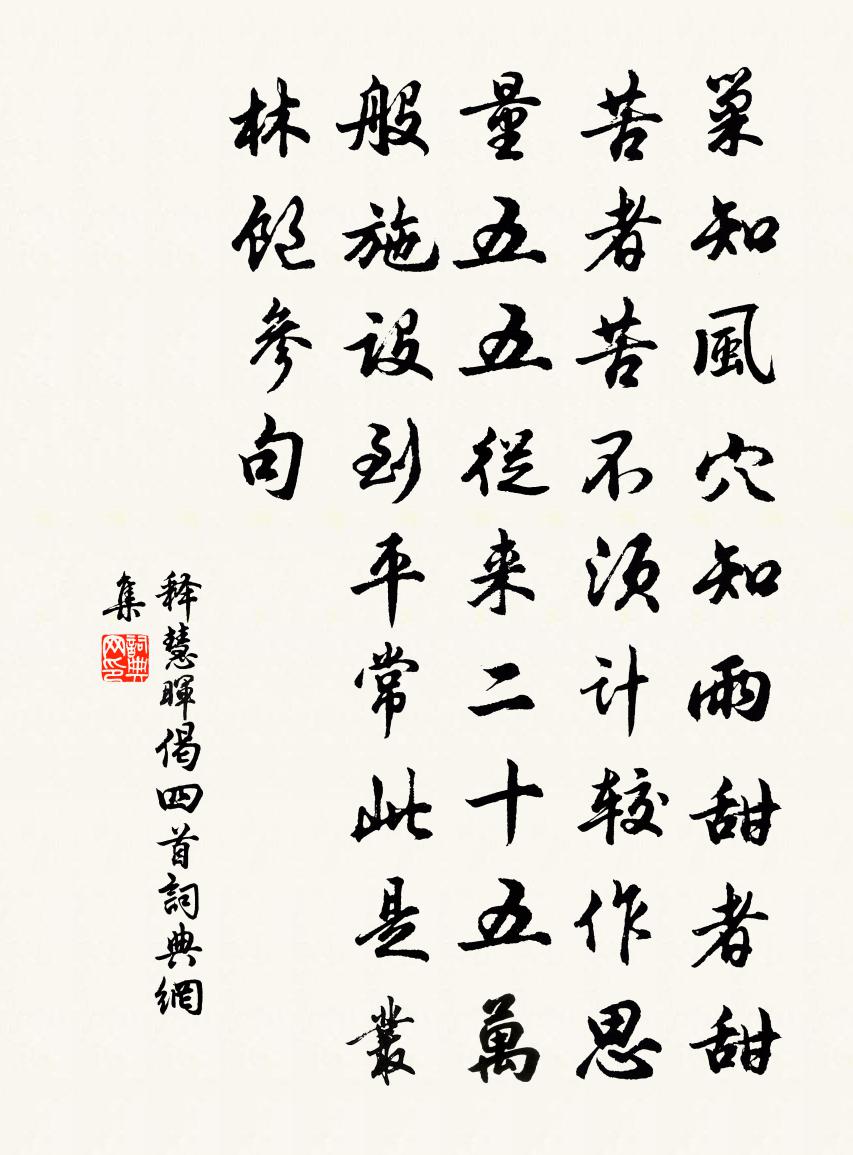 巢知風穴知雨甜者甜
苦者苦不須计较作思
量五五從来二十五萬
般施設到平常此是叢
林飽參句
释慧暉偈四首詞典網
集
詞典
网印